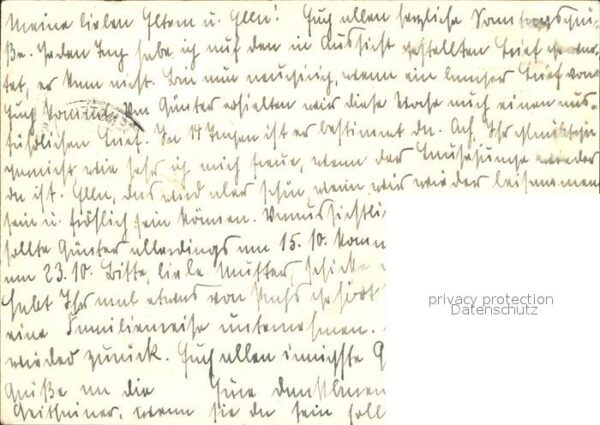 Meine lieben Eltern u. Elln! Euch allen herzliche Sonntagsgrü-
ße. Jeden Tag habe ich auf den in Aussicht gestellten Brief gewar-
tet, er kam nicht. Bin nun neugierig, wenn ein langer Brief von
Euch kommt. Von Günter erhielten wir diese Woche auch einen aus-
führlichen Brief. In 14 Tagen ist er bestimmt da. Ach, Ihr glaubt ja
gar nicht wie sehr ich mich freue, wenn der wieder
da ist. Elln, das wird aber schön wenn wir wieder beisammen
sein u. fröhlich sein können. Voraussichtli
sollte Günter allerdings am 15.10. kom
am 23.10. Bitte, liebe Mutter schicke
habt Ihr mal etwas von gehört
eine Familienreise unternehmen.
wieder zurück. Euch allen innigste G
Grüße an die Eure
wenn sie da sein soll
privacy protection
Datenschutz